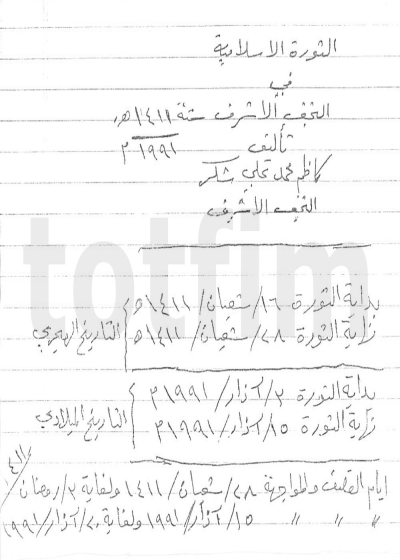 الثورة الاسلامية
في
النجف الأشرف سنة ١٤١١هـ
١٩٩١م
تأليف
كاظم محمد علي شكر
النجف الأشرف
totfim
بداية الثورة ١٦/شعبان/١٤١١هـ
نهاية الثورة ٢٨/شعبان/١٤١١هـ
التاريخ الهجري
بداية الثورة ٣/آذار/١٩٩١م
نهاية الثورة ١٥/آذار/١٩٩١م
التاريخ الميلادي
ايام القصف والمواجهة ٢٨/شعبان/١٤١١ ولغاية ٣/رمضان/١٤١١
〃 〃 〃 ١٥/آذار/١٩٩١ ولغاية ٢٠/آذار/١٩٩١